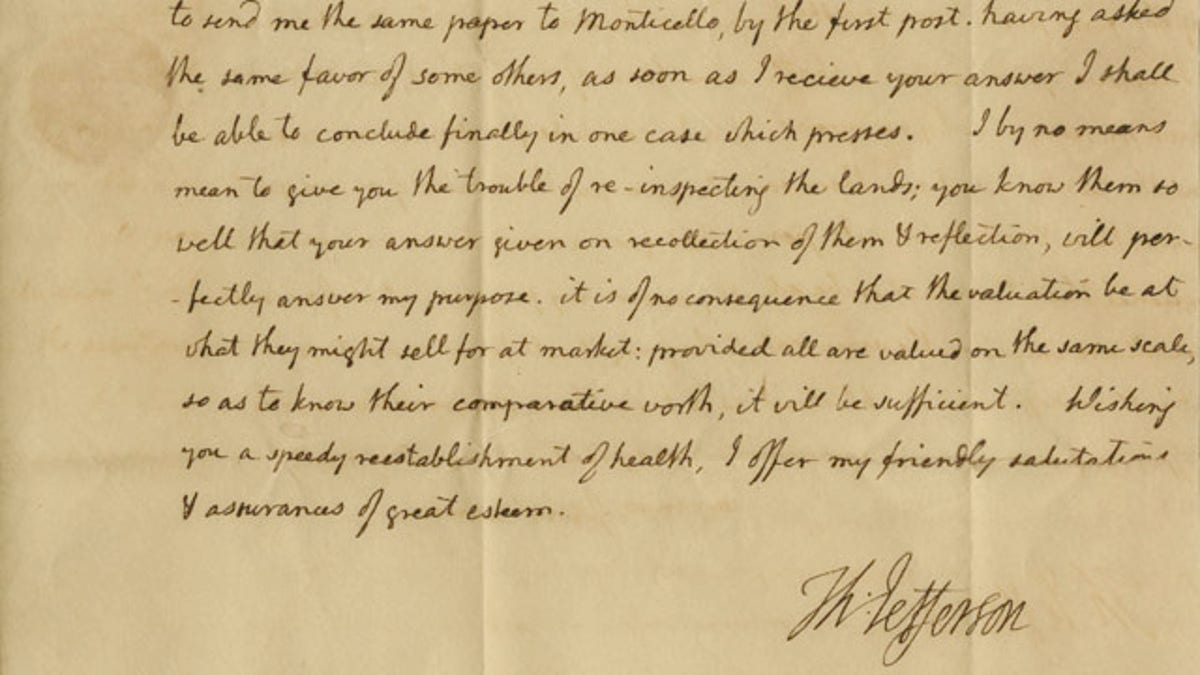 to send me the same paper to Monticello, by the first post. having asked
the same favor of some others, as soon as I recieve your answer I shall
be able to conclude finally in one case which presses. I by no means
mean to give you the trouble of re-inspecting the lands; you know them so
well that your answer given on recollection of them & reflection, will per-
-fectly answer my purpose. it is of no consequence that the valuation be at
what they might sell for at market: provided all are valued on the same scale,
so as to know their comparative worth, it will be sufficient. Wishing
you a speedy reestablishment of health, I offer my friendly salutations
& assurances of great esteem.
Th: Jefferson